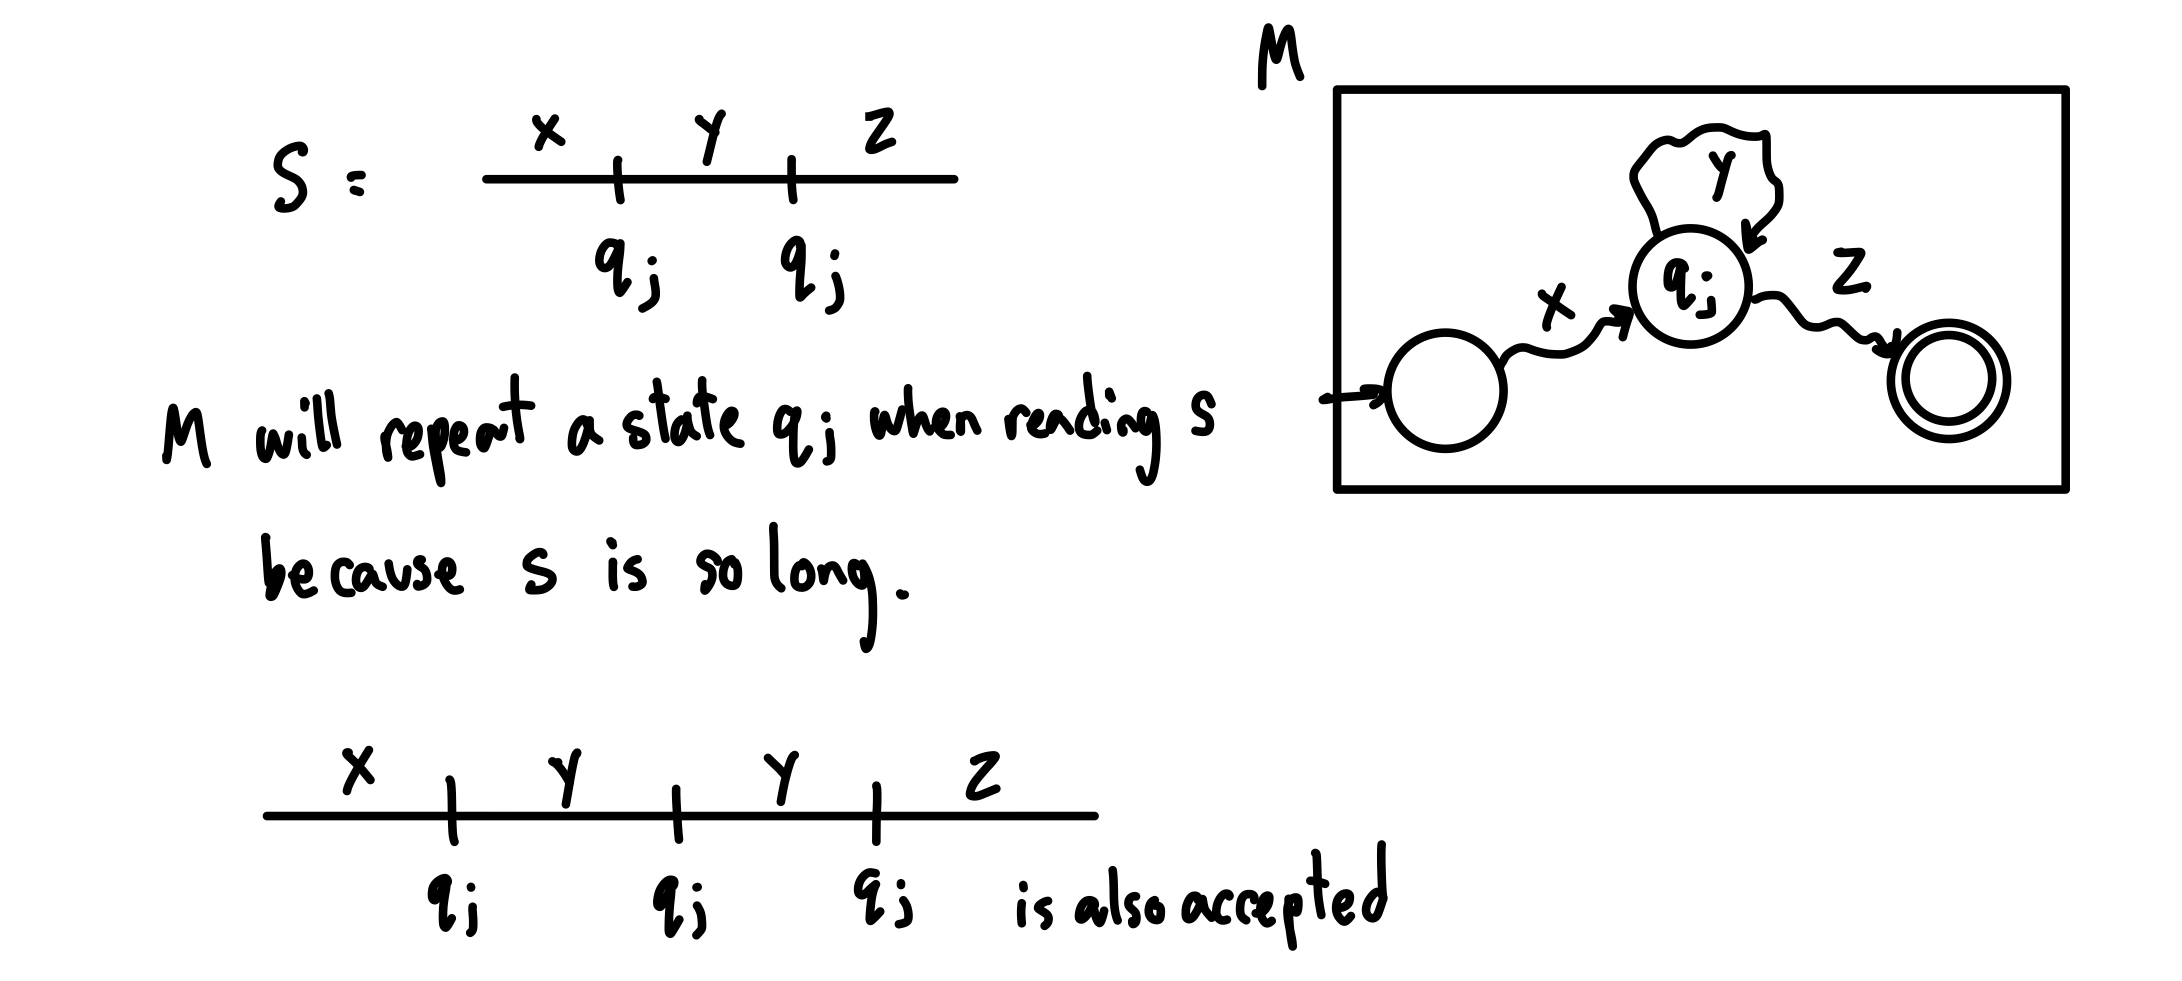 M
x y z
S =
qj qj
y
qj
x
z
M will repeat a state qj when reading s
because s is so long.
x y y z
qj qj qj is also accepted